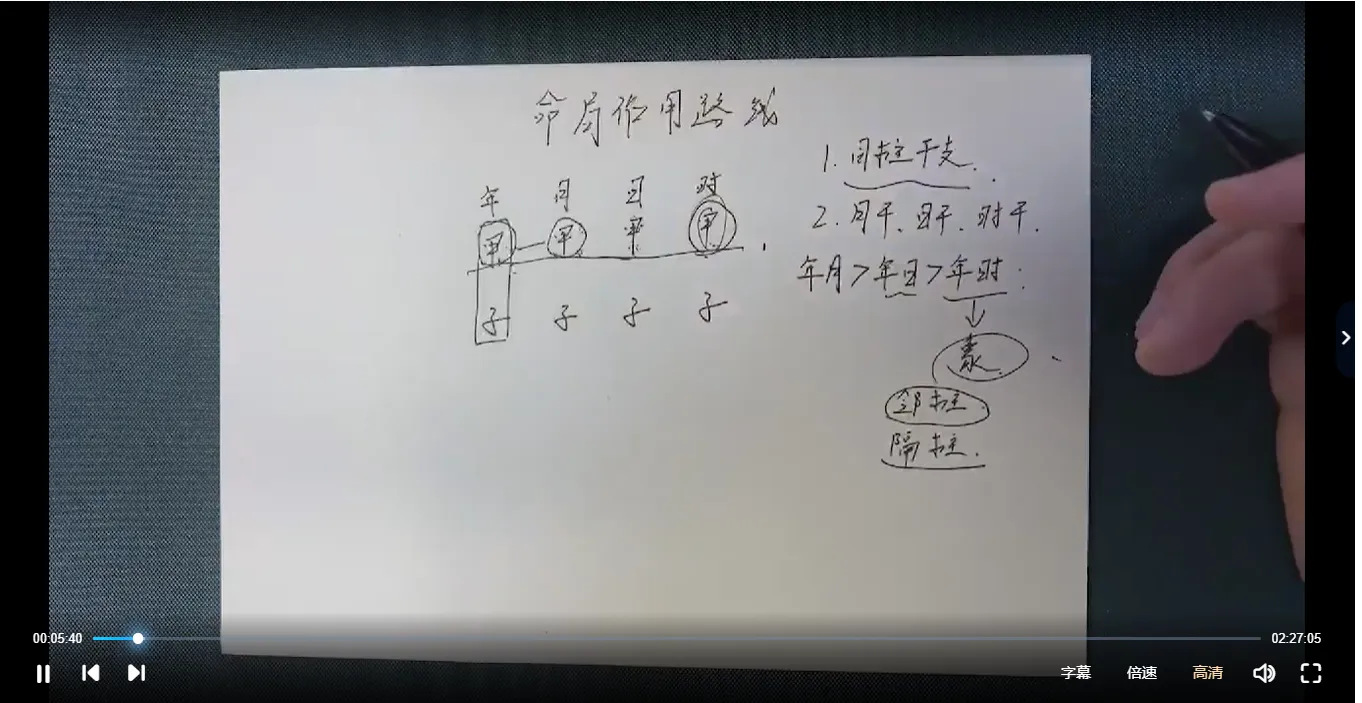 命局作用路线
年 月 日 时
甲 甲 甲 甲
子 子 子 子
1. 同柱干支.
2. 月干、日干、时干.
年月>年日>年时
邻柱
隔柱.
00:05:40
02:27:05
字幕 倍速 高清